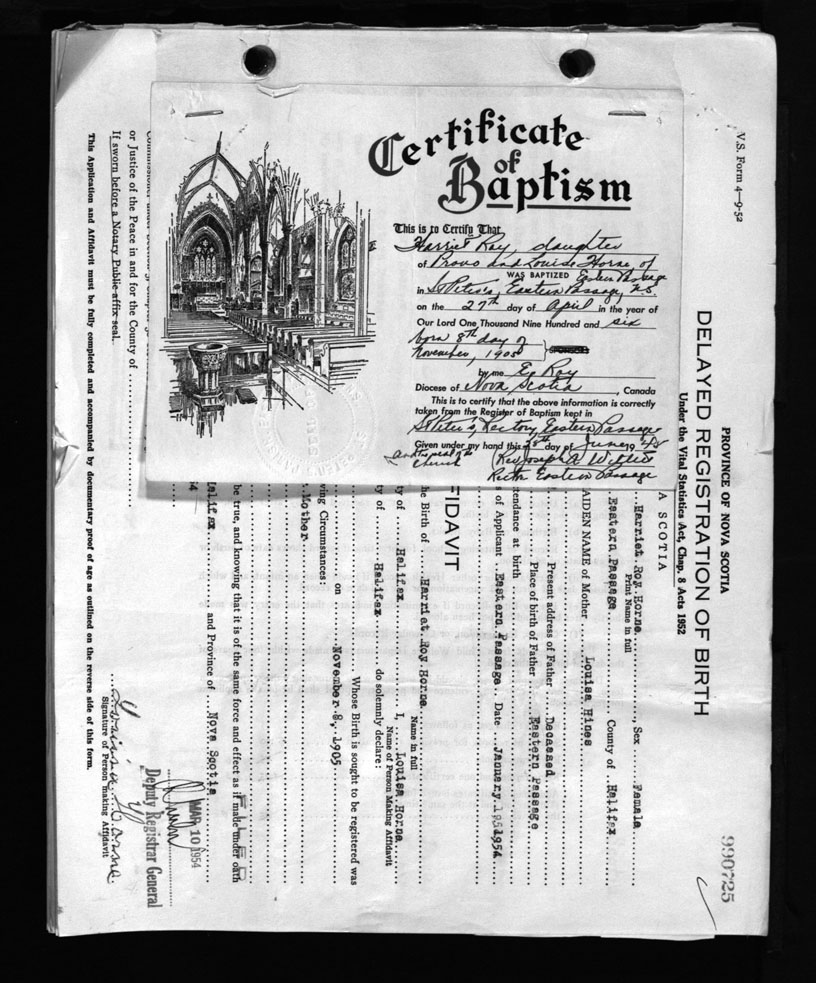 Certificate
of
Baptism
This is to Certify That
Harriet Roy, daughter
of Provo and Louise Horne of
WAS BAPTIZED Eastern Passage
in St Peter's, Eastern Passage, N.S.
on the 27th day of April in the year of
Our Lord One Thousand Nine Hundred and six
born 8th day of
November, 1905
by me E. Roy
Diocese of Nova Scotia, Canada
This is to certify that the above information is correctly
taken from the Register of Baptism kept in
St Peter's Rectory, Eastern Passage
Given under my hand this 28th day of June 19
and the seal of the
church
Rev Joseph A.
Rector Eastern Passage
V.S. Form 4—9-52
PROVINCE OF NOVA SCOTIA
DELAYED REGISTRATION OF BIRTH
Under the Vital Statistics Act, Chap. 8 Acts 1952
990725
A SCOTIA
Harriet Roy Horne, Sex Female
Print Name in full
Eastern Passage County of Halifax
AIDEN NAME of Mother Louisa Hines
Present address of Father Deceased
Place of birth of Father Eastern Passage
tendance at birth
s of Applicant Eastern Passage Date January 1954
FIDAVIT
he Birth of Harriet Roy Horne
Name in full
ty of Halifax I, Louisa Horne
Name of Person Making Affidavit
ty of Halifax do solemnly declare:
Whose Birth is sought to be registered was
on November 8, 1905
ving Circumstances:
Mother
be true, and knowing that it is of the same force and effect as if made under oath
FILED
Halifax and Province of Nova Scotia
54
MAR 10 1954
Deputy Registrar General
Louisa Horne
Signature of Person making Affidavit
or Justice of the Peace in and for the County of
If sworn before a Notary Public affix seal.
This Application and Affidavit must be fully completed and accompanied by documentary proof of age as outlined on the reverse side of this form.